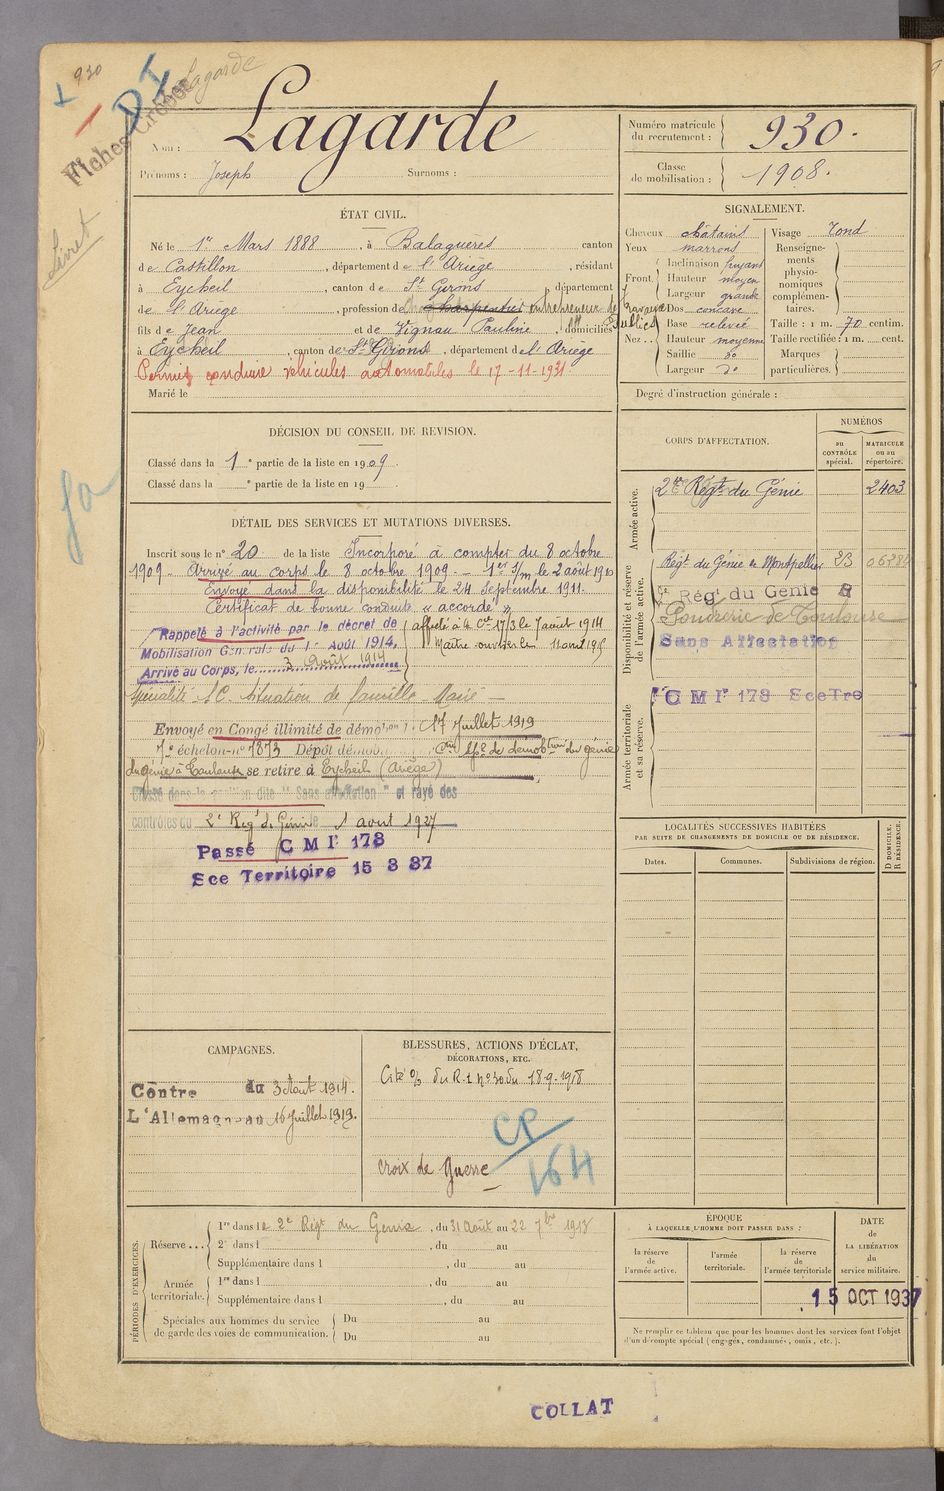 930
Lagarde
D I
Fiches
Livret
Nom : Lagarde
Prénoms : Joseph Surnoms :
Numéro matricule du recrutement : 930.
Classe de mobilisation : 1908.
ÉTAT CIVIL.
Né le 1er Mars 1888, à Balaguères canton
de Castillon, département de l'Ariège, résidant
à Eycheil, canton de St Girons, département
de l'Ariège, profession de charpentier entrepreneur de travaux publics
fils de Jean et de Vignau Pauline, domiciliés
à Eycheil, canton de St Girons, département de l'Ariège
Permis conduire véhicules automobiles le 17-11-1931
Marié le
SIGNALEMENT.
Cheveux châtains
Yeux marrons
Front Inclinaison fuyant
Hauteur moyen
Largeur grande
Nez .. Dos concave
Base relevée
Hauteur moyenne
Saillie do
Largeur do
Visage rond
Renseignements physionomiques complémentaires.
Taille : 1 m. 70 centim.
Taille rectifiée : 1 m. cent.
Marques particulières.
Degré d'instruction générale :
DÉCISION DU CONSEIL DE REVISION.
Classé dans la 1e partie de la liste en 1909.
Classé dans la e partie de la liste en 19
DÉTAIL DES SERVICES ET MUTATIONS DIVERSES.
Inscrit sous le n° 20 de la liste Incorporé à compter du 8 octobre
1909 - Arrivé au corps le 8 octobre 1909 - 1er S/m le 2 août 1910
Envoyé dans la disponibilité le 24 Septembre 1911.
Certificat de bonne conduite « accordé »
Rappelé à l'activité par le décret de
Mobilisation Générale du 1er Août 1914.
Arrivé au Corps, le 3 Août 1914
affecté à la Cie 17/3 le 7 août 1914
Maître ouvrier le 11 avril 1915
Spécialité S.C. Situation de famille Marié
Envoyé en Congé illimité de démobon le 17 Juillet 1919
7e échelon n° 7873 Dépôt démob
du génie à Toulouse se retire à Eycheil (Ariège)
Classé dans la position dite "Sans affectation" et rayé des
contrôles du 2e Régt de Génie le 1 aout 1927
Passé C M Ie 178
Sce Territoire 15 3 37
CORPS D'AFFECTATION.
NUMÉROS
au CONTRÔLE spécial.
MATRICULE ou au répertoire.
Armée active.
2me Régt du Génie 2403
Disponibilité et réserve de l'armée active.
Régt du Génie de Montpellier
Régt du Genie R
Poudrerie de Toulouse
Sans Affectation
Armée territoriale et sa réserve.
C M Ie 178 Sce Tre
LOCALITÉS SUCCESSIVES HABITÉES
PAR SUITE DE CHANGEMENTS DE DOMICILE OU DE RÉSIDENCE.
Dates. Communes. Subdivisions de région. D DOMICILE. R RÉSIDENCE.
CAMPAGNES.
Contre du 3 Août 1914.
L'Allemagne au 16 Juillet 1919.
BLESSURES, ACTIONS D'ÉCLAT,
DÉCORATIONS, ETC.
Cité o/ du R.t n° 30 du 18.9.1918
CP
164
croix de Guerre
PÉRIODES D'EXERCICES.
Réserve ... 1re dans le 2e Régt du Génie, du 31 août au 22 7bre 1913
2e dans l , du au
Supplémentaire dans l , du au
Armée territoriale. 1re dans l , du au
Supplémentaire dans l , du au
Spéciales aux hommes du service de garde des voies de communication. Du au
Du au
ÉPOQUE
À LAQUELLE L'HOMME DOIT PASSER DANS :
la réserve de l'armée active.
l'armée territoriale.
la réserve de l'armée territoriale
DATE de LA LIBÉRATION du service militaire.
15 OCT 1937
Ne remplir ce tableau que pour les hommes dont les services font l'objet
d'un décompte spécial (engagés, condamnés, omis, etc.).
COLLAT